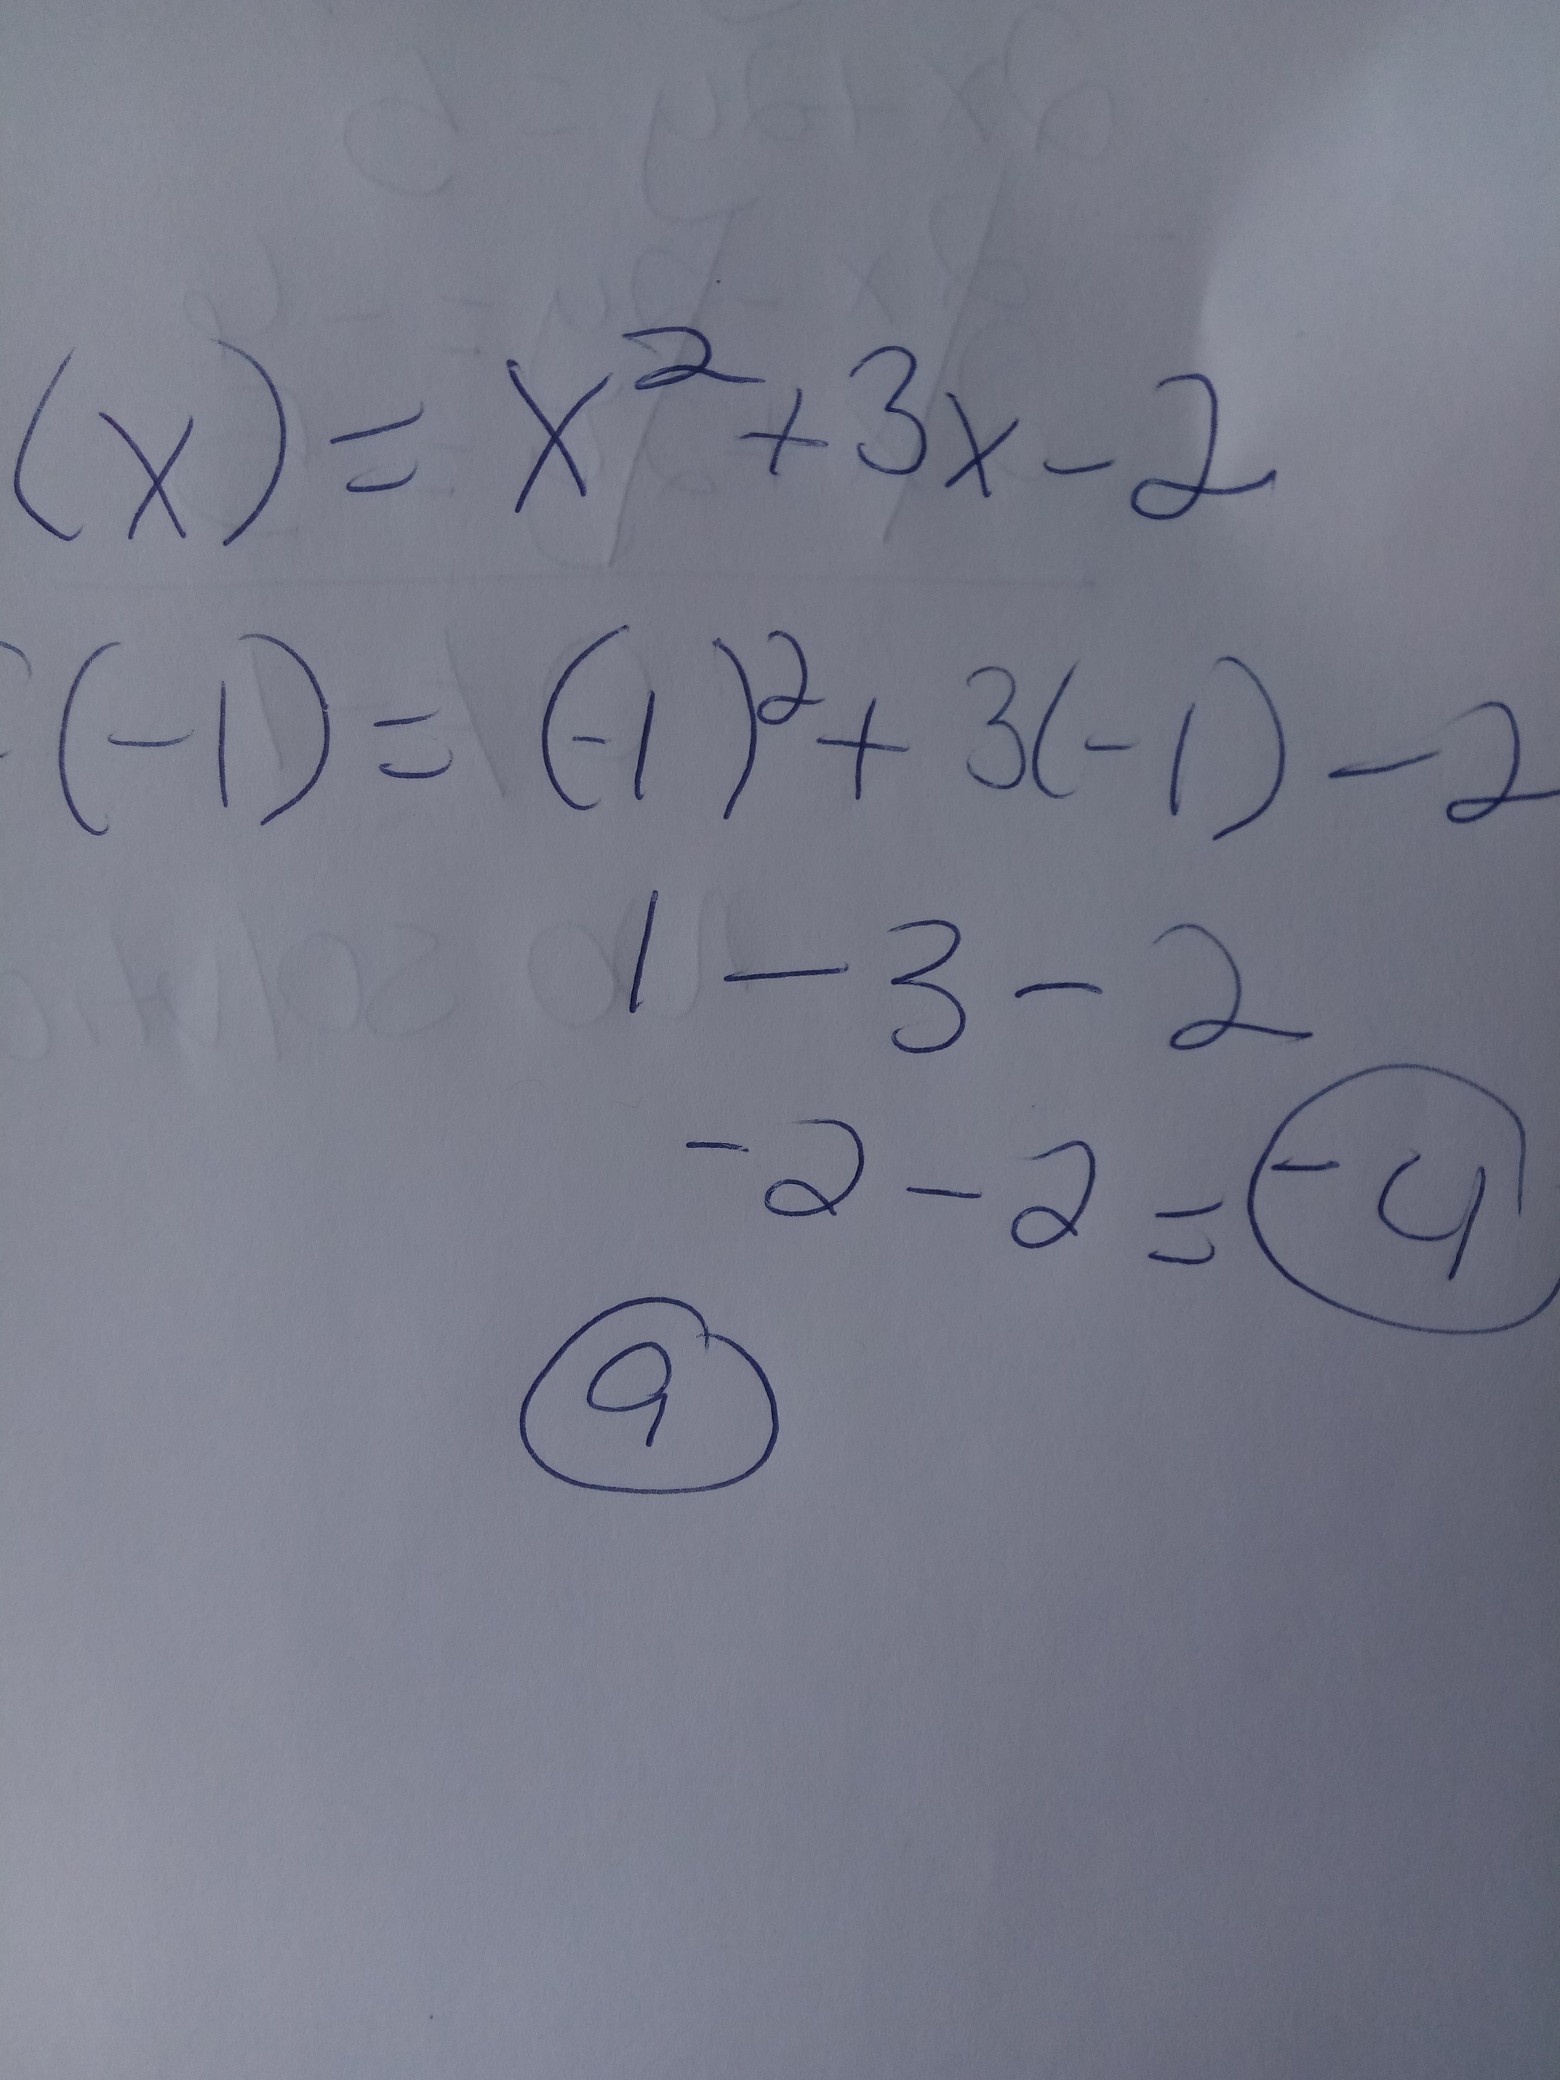 (x) = x² + 3x - 2
(-1) = (-1)² + 3(-1) - 2
1 - 3 - 2
-2 - 2 = -4
9